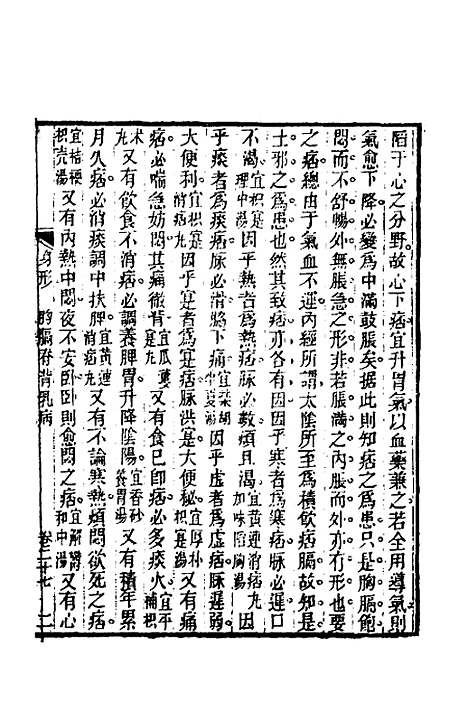 陷于心之分野故心下痞宜升胃氣以血藥兼之若全用導氣則
氣愈下降必變爲中滿鼓脹矣據此則知痞之爲患只是胸膈飽
悶而不舒暢外無脹急之形非若脹滿之內脹而外亦有形也要
之痞總由于氣血不運內經所謂太陰所至爲積飲痞膈故知是
土邪之爲患也然其致痞亦各有因因乎寒者爲寒痞脉必遲口
不渴宜枳實理中湯因乎熱者爲熱痞脉必數煩且渴宜黃連消痞丸加味陷胸湯因
乎痰者爲痰痞脉必滑脇下痛宜柴胡半夏湯因乎虛者爲虛痞脉遲弱
大便利宜枳實消痞丸因乎實者爲實痞脉洪實大便秘宜厚朴枳實湯又有痛
痞必喘急妨悶其痛徹背宜瓜蔞實丸又有食已即痞必多痰火宜平補枳
术丸又有飲食不消痞必調養脾胃升降陰陽宜香砂養胃湯又有積年累
月久痞必消痰調中扶脾宜黃連消痞丸又有不論寒熱煩悶欲死之痞
宜桔梗枳壳湯又有內熱中悶夜不安卧卧則愈悶之痞宜解鬱和中湯又有心
身形 胸膈脊背乳病 卷二十七 二